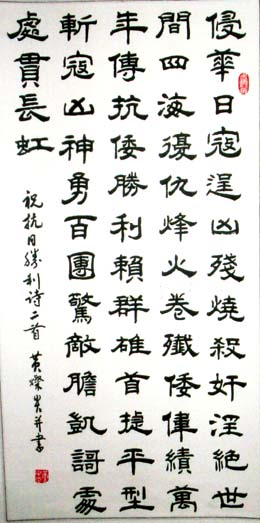 侵華日寇逞凶殘燒殺奸淫絕世
間四海復仇烽火卷殲倭偉績萬
年傳抗倭勝利賴群雄首捷平型
斬寇凶神勇百團驚敵膽凱謌處
處貫長虹
祝抗日勝利诗二首 黄燦并書